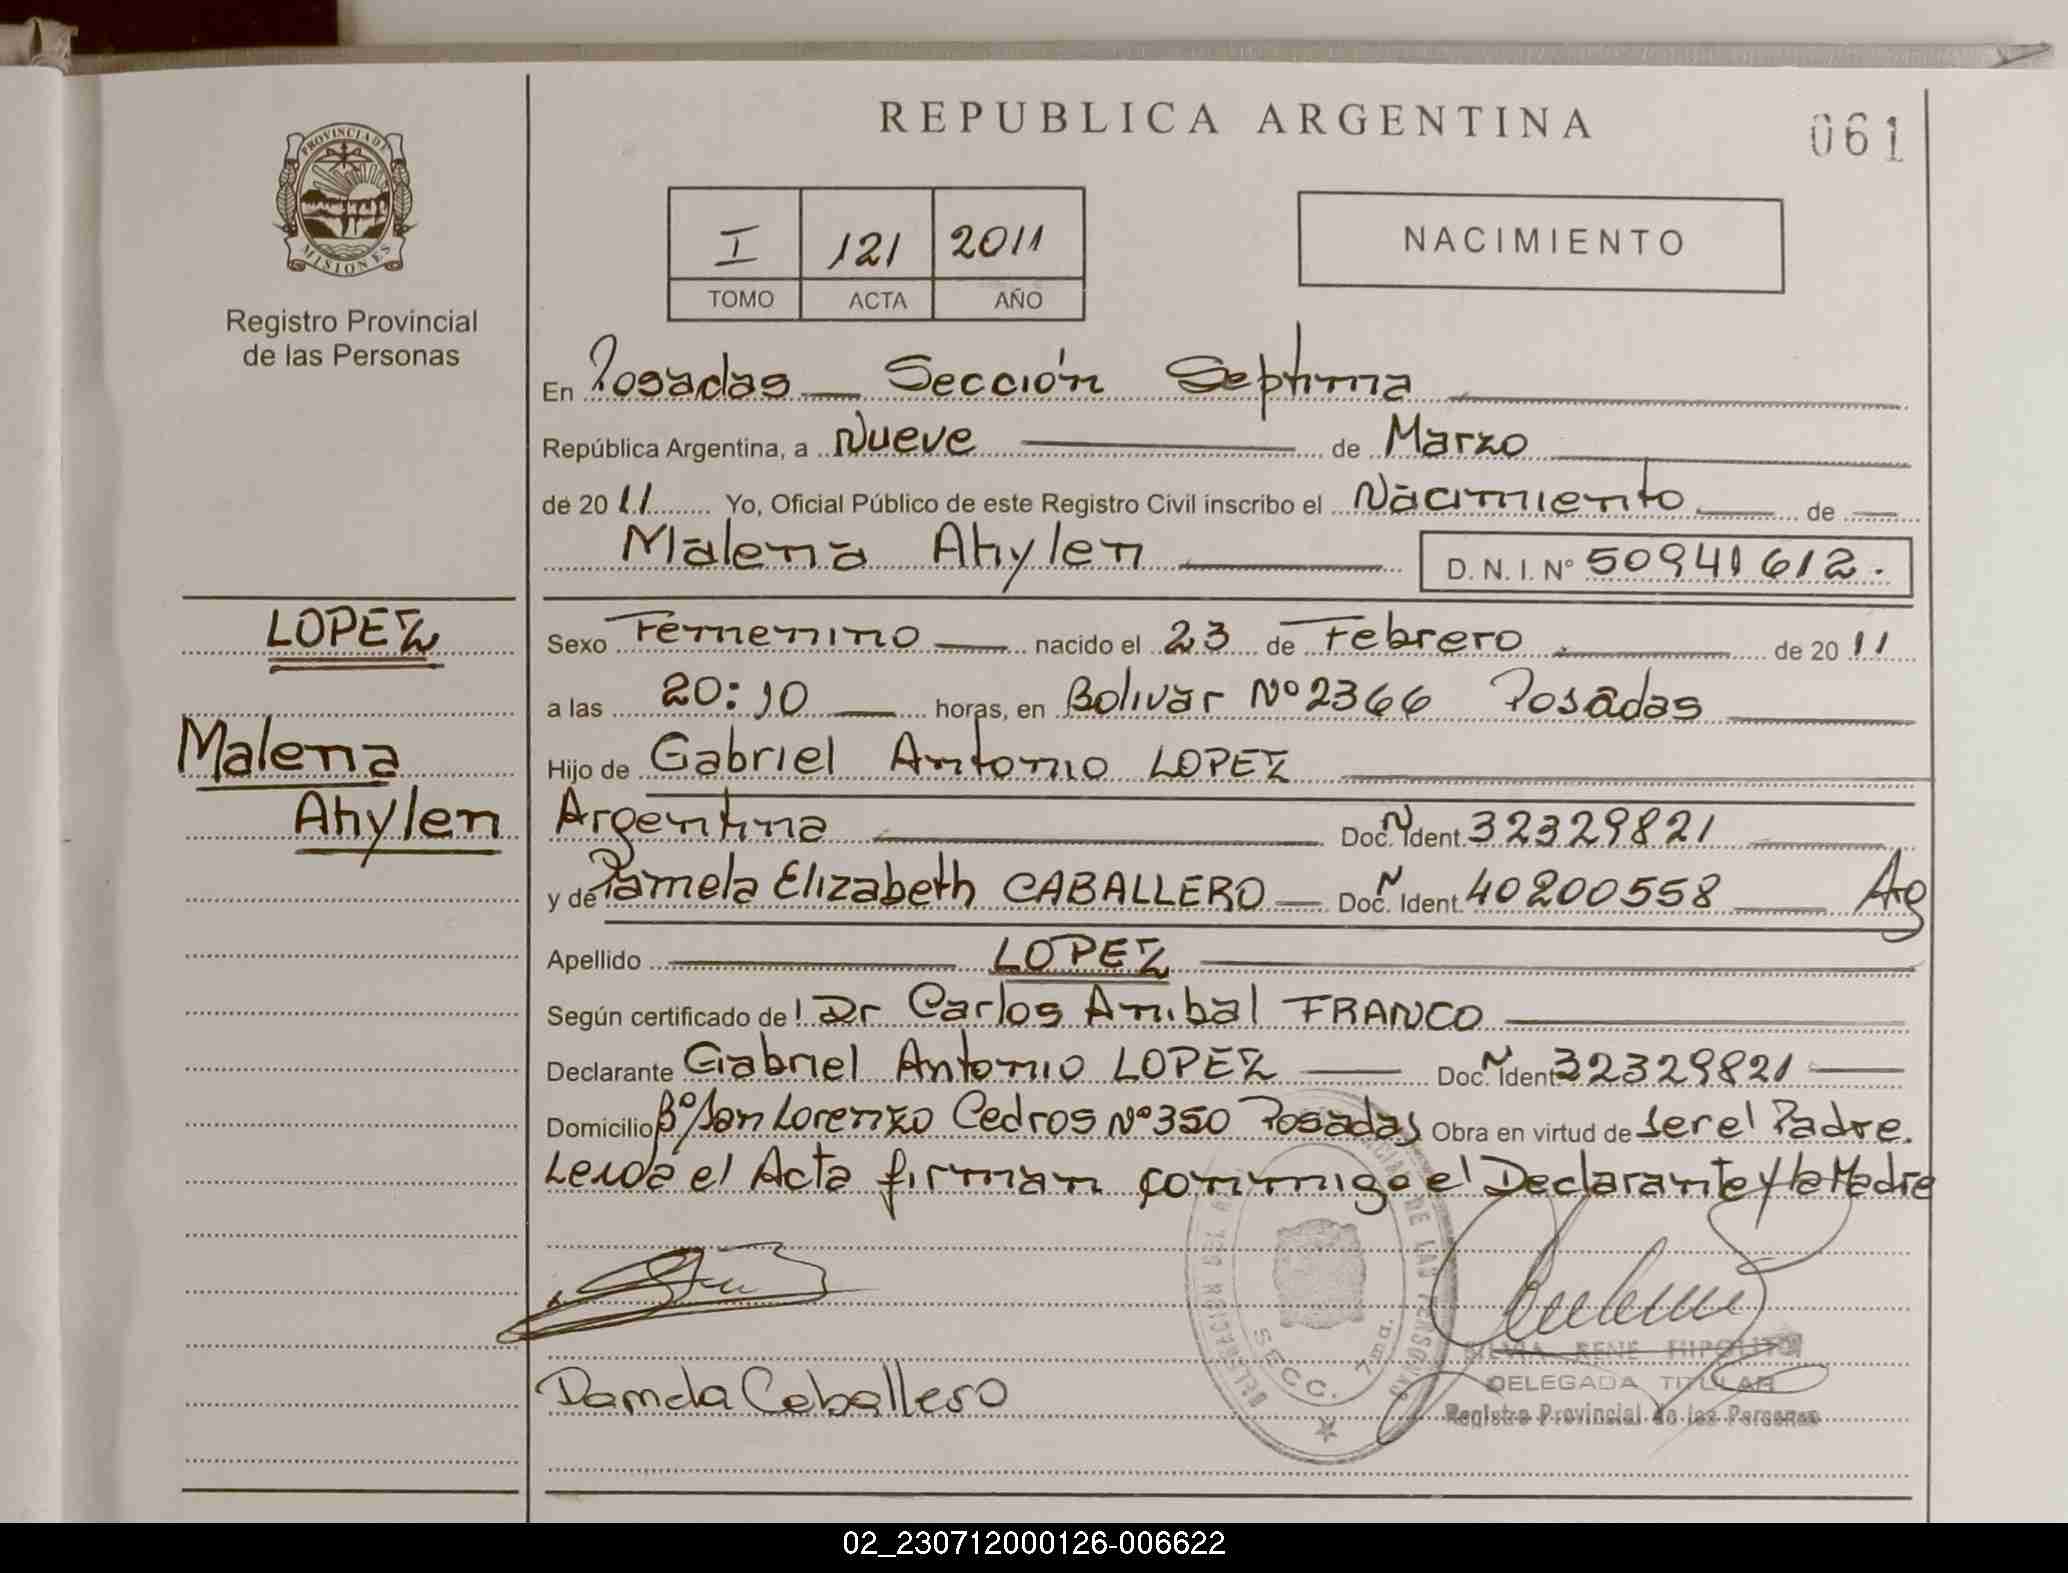 REPUBLICA ARGENTINA
061
PROVINCIA DE MISIONES
Registro Provincial
de las Personas
I 121 2011
TOMO ACTA AÑO
NACIMIENTO
En Posadas Sección Septima
República Argentina, a Nueve de Marzo
de 2011 Yo, Oficial Público de este Registro Civil inscribo el Nacimiento de
Malena Ahylen D. N. I. N° 50941612.
LOPEZ
Malena
Ahylen
Sexo Femenino nacido el 23 de Febrero de 2011
a las 20:10 horas, en Bolivar Nº 2366 Posadas
Hijo de Gabriel Antonio LOPEZ
Argentina Doc. N Ident. 32329821
y de Pamela Elizabeth CABALLERO Doc. N Ident. 40200558 Arg
Apellido LOPEZ
Según certificado de l Dr Carlos Anibal FRANCO
Declarante Gabriel Antonio LOPEZ Doc. N Ident 32329821
Domicilio Bº San Lorenzo Cedros Nº 350 Posadas Obra en virtud de ser el Padre.
Leida el Acta firman conmigo el Declarante y la Madre
Pamela Caballero
SECC. 7ma.
SILVIA RENE HIPOLITO
DELEGADA TITULAR
Registro Provincial de las Personas
02_230712000126-006622